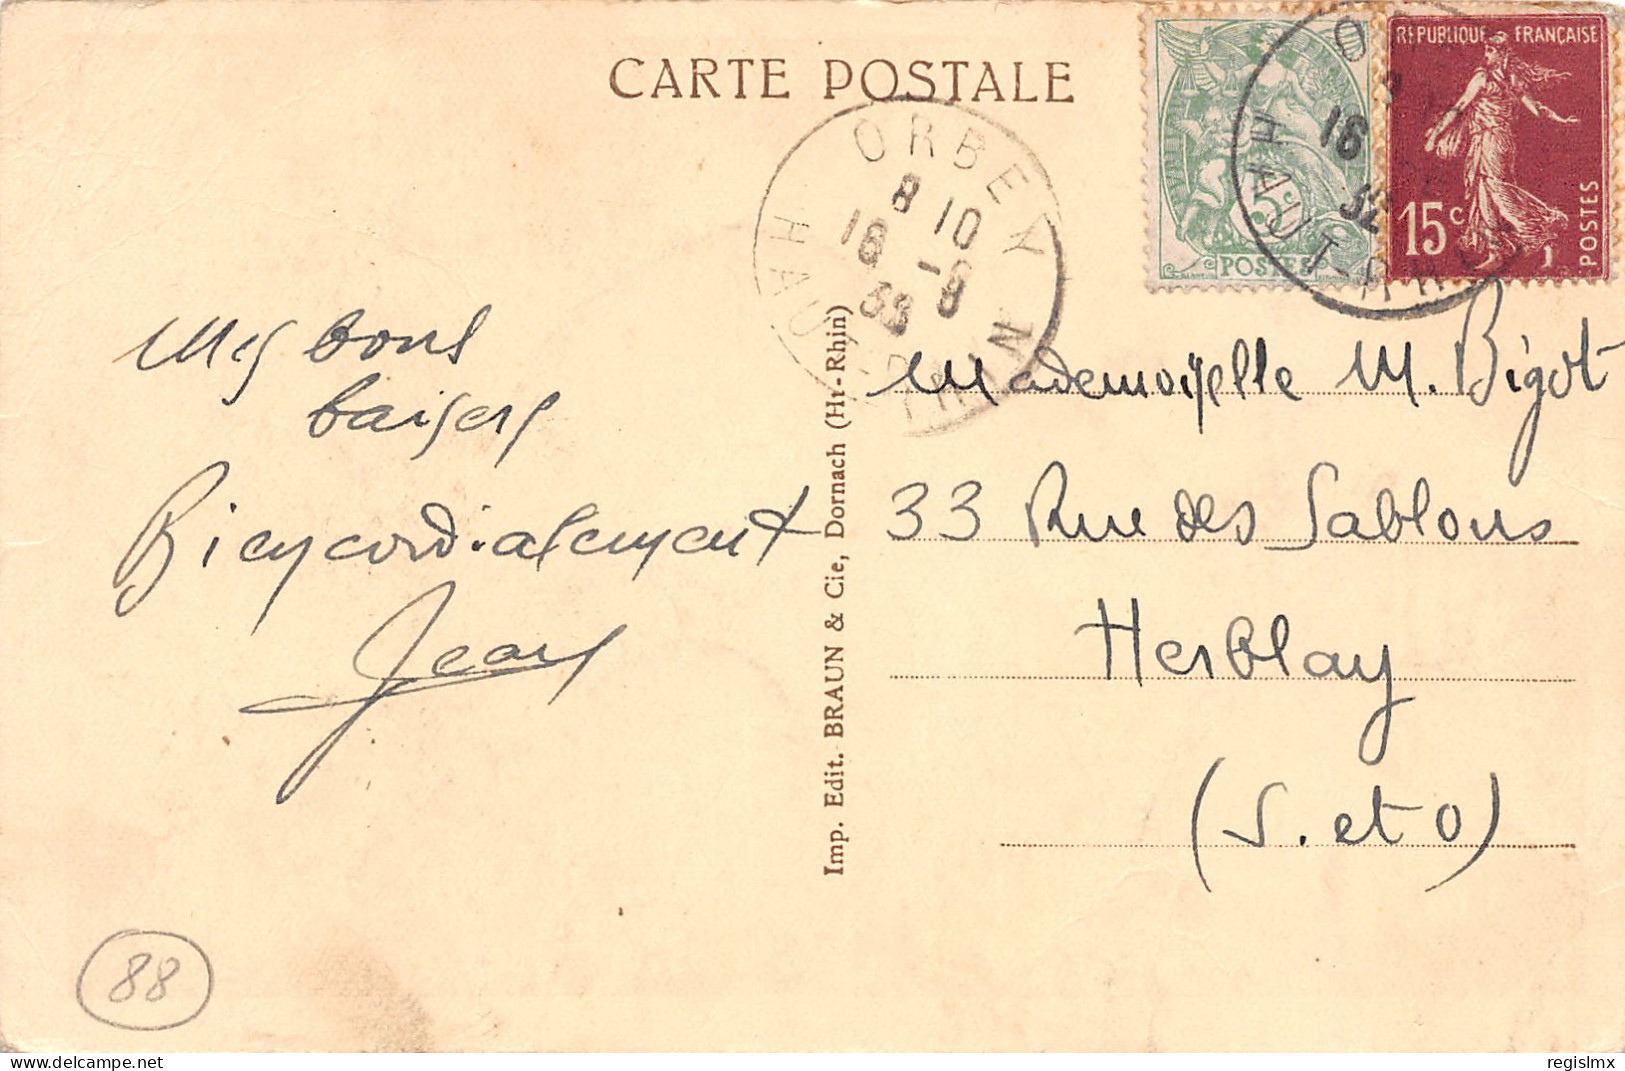 CARTE POSTALE
ORBEY
8 10
16 -8
HAUT-RHIN
REPUBLIQUE FRANÇAISE
15c
POSTES
5c
POSTES
16
HAUT-RHIN
Mes bons
baisers
Bien cordialement
Jean
Imp. Edit. BRAUN & Cie, Dornach (Ht-Rhin)
Mademoiselle M. Bigot
33 Rue des Sablons
Herblay
(S. et O)
88
delcampe.net
regislmx